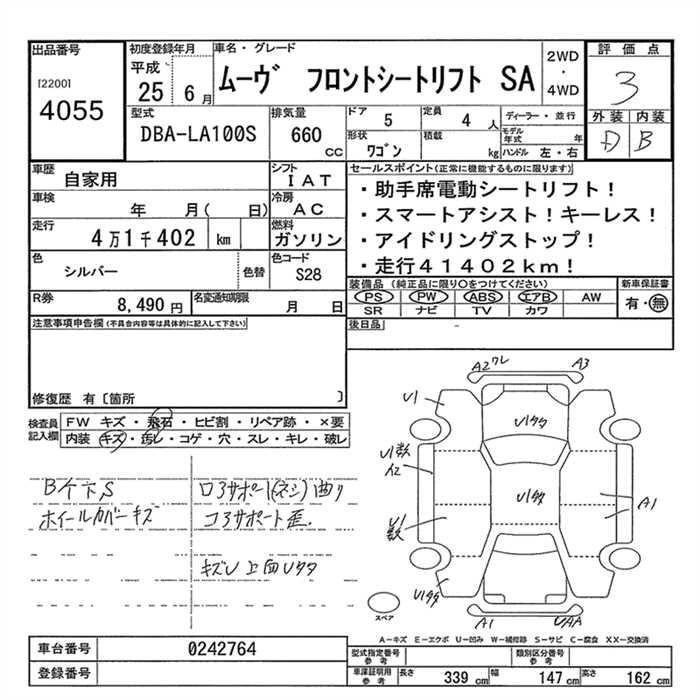 出品番号
[2200]
4055
初度登録年月
平成
25 6月
車名・グレード
ムーヴ フロントシートリフト SA
2WD
・
4WD
評価点
3
外装 内装
D B
型式
DBA-LA100S
排気量
660
CC
ドア
5
定員
4 人
ディーラー・並行
モデル年式 年
形状
ワゴン
積載
kg
ハンドル 左・右
車歴
自家用
シフト
IAT
セールスポイント(正常に機能するものに限ります)
・助手席電動シートリフト!
・スマートアシスト!キーレス!
・アイドリングストップ!
・走行41402km!
車検
年 月( 日)
冷房
AC
走行
4万1千402 km
燃料
ガソリン
色
シルバー
色替
色コード
S28
装備品 (純正品に限り〇をつけてください)
PS PW ABS エアB AW
SR ナビ TV カワ
新車保証書
有・無
R券
8,490 円
名変通知期限
月 日
後日品
注意事項申告欄 (不具合内容等は具体的に記入して下さい)
修復歴 有〔箇所 〕
検査員記入欄
FW キズ・飛石・ヒビ割・リペア跡・×要
内装 キズ・汚レ・コゲ・穴・スレ・キレ・破レ
ホイールカバーキズ
A2 ワレ A3
U1
U1タタ
U1数
A2
U1タタ
A1
U1数
U1タタ
A1
スペア
A-キズ E-エクボ U-凹み W-補修跡 S-サビ C-腐食 XX-交換済
車台番号
0242764
登録番号
型式指定番号 参考
類別区分番号 参考
車庫証明用 参考
長さ 339 cm 幅 147 cm 高さ 162 cm